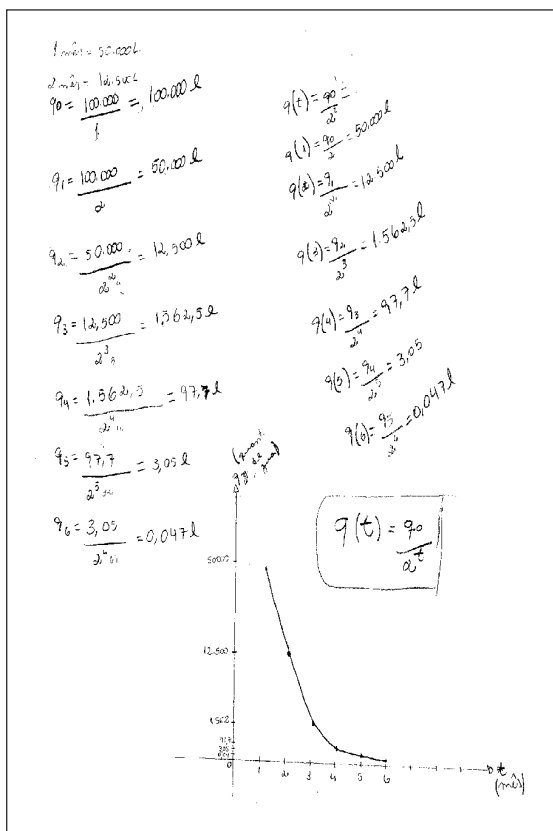 1 mês = 50.000 L
2 mês = 12.500 L
q0 = 100.000 / 1 = 100.000 l
q1 = 100.000 / 2 = 50.000 l
q2 = 50.000 / 2^2 4 = 12,500 l
q3 = 12,500 / 2^3 8 = 1.562,5 l
q4 = 1.562,5 / 2^4 = 97,7 l
q5 = 97,7 / 2^5 32 = 3,05 l
q6 = 3,05 / 2^6 64 = 0,047 l
q(t) = q0 =
q(1) = q0 / 2 = 50.000 l
q(2) = q1 / 2^2 = 12.500 l
q(3) = q2 / 2^3 = 1.562,5 l
q(4) = q3 / 2^4 = 97,7 l
q(5) = q4 / 2^5 = 3,05
q(6) = q5 / 2^6 = 0,047 l
q(t) = q0 / 2^t
(quant.
de
50000
12.500
1.562
0 1 2 3 4 5 6 t
(mês)